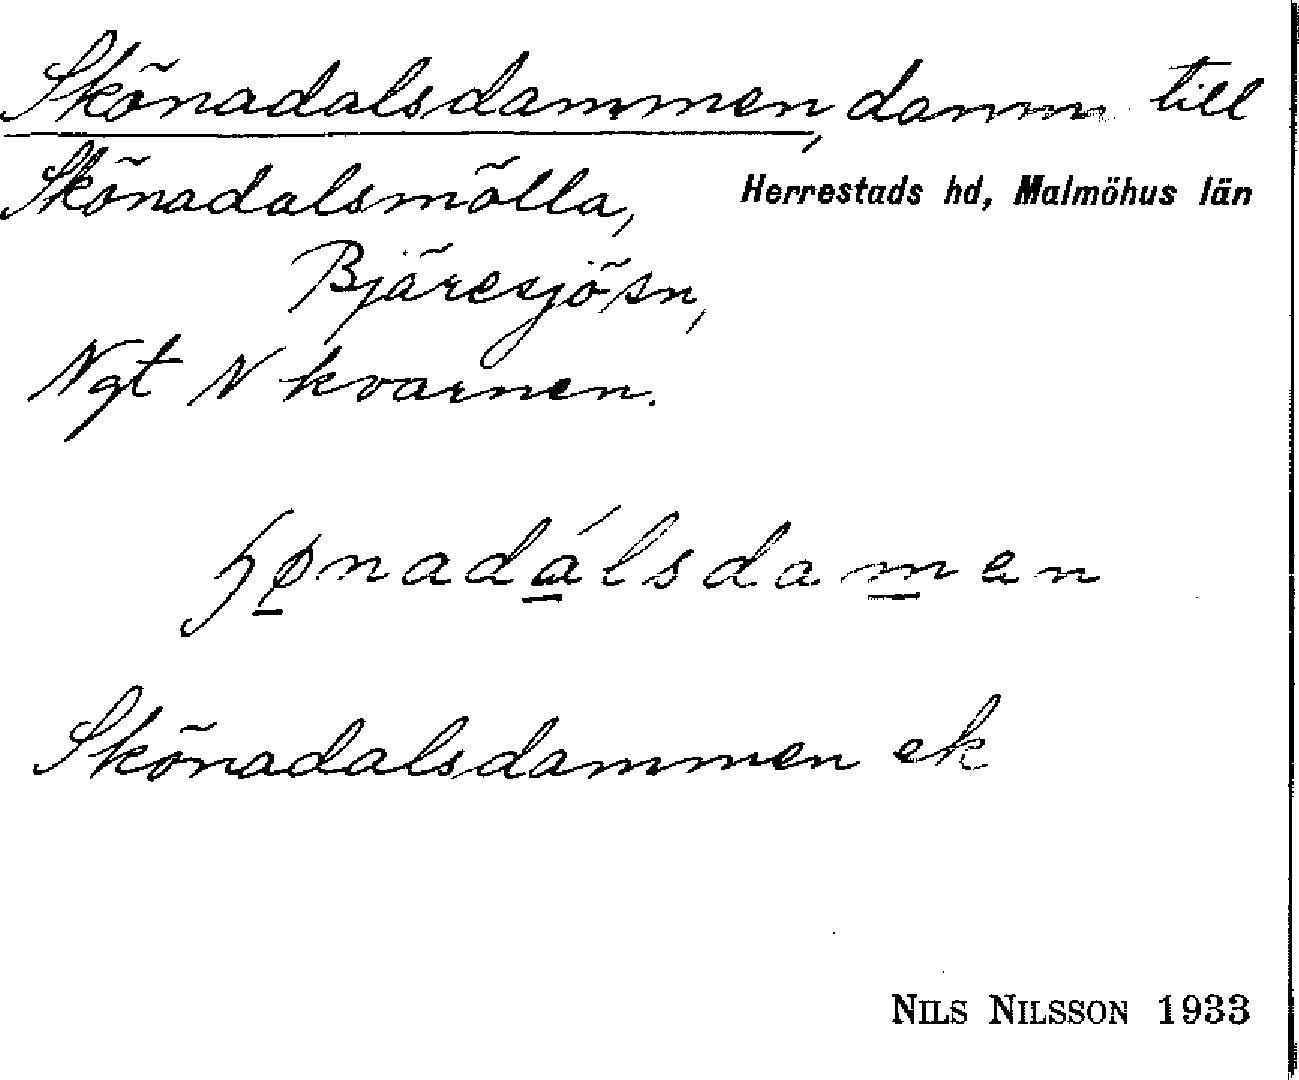 Skönadalsdammen, damm till
Skönadalsmölla,
Herrestads hd, Malmöhus län
Bjäresjö sn,
Ngt N kvarnen.
ɧønadálsdamen
Skönadalsdammen ek
NILS NILSSON 1933